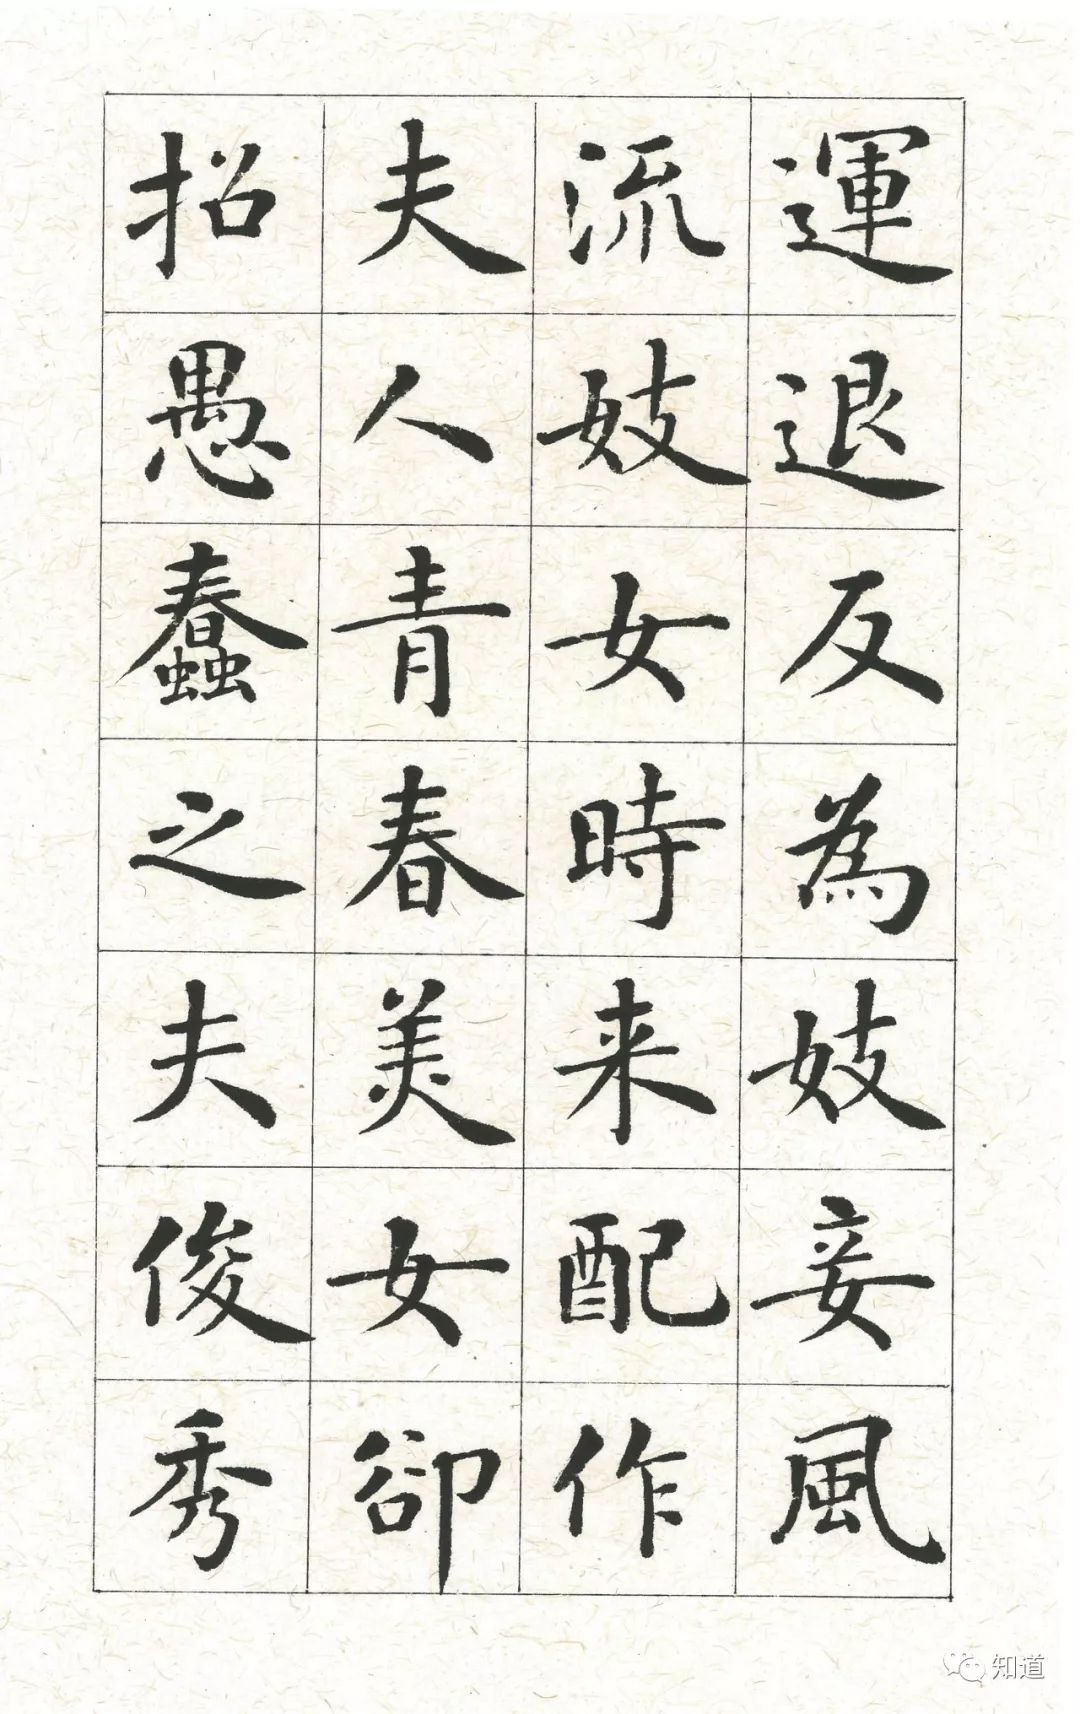 運退反為妓妾風
流妓女時来配作
夫人青春美女卻
招愚蠢之夫俊秀
知道